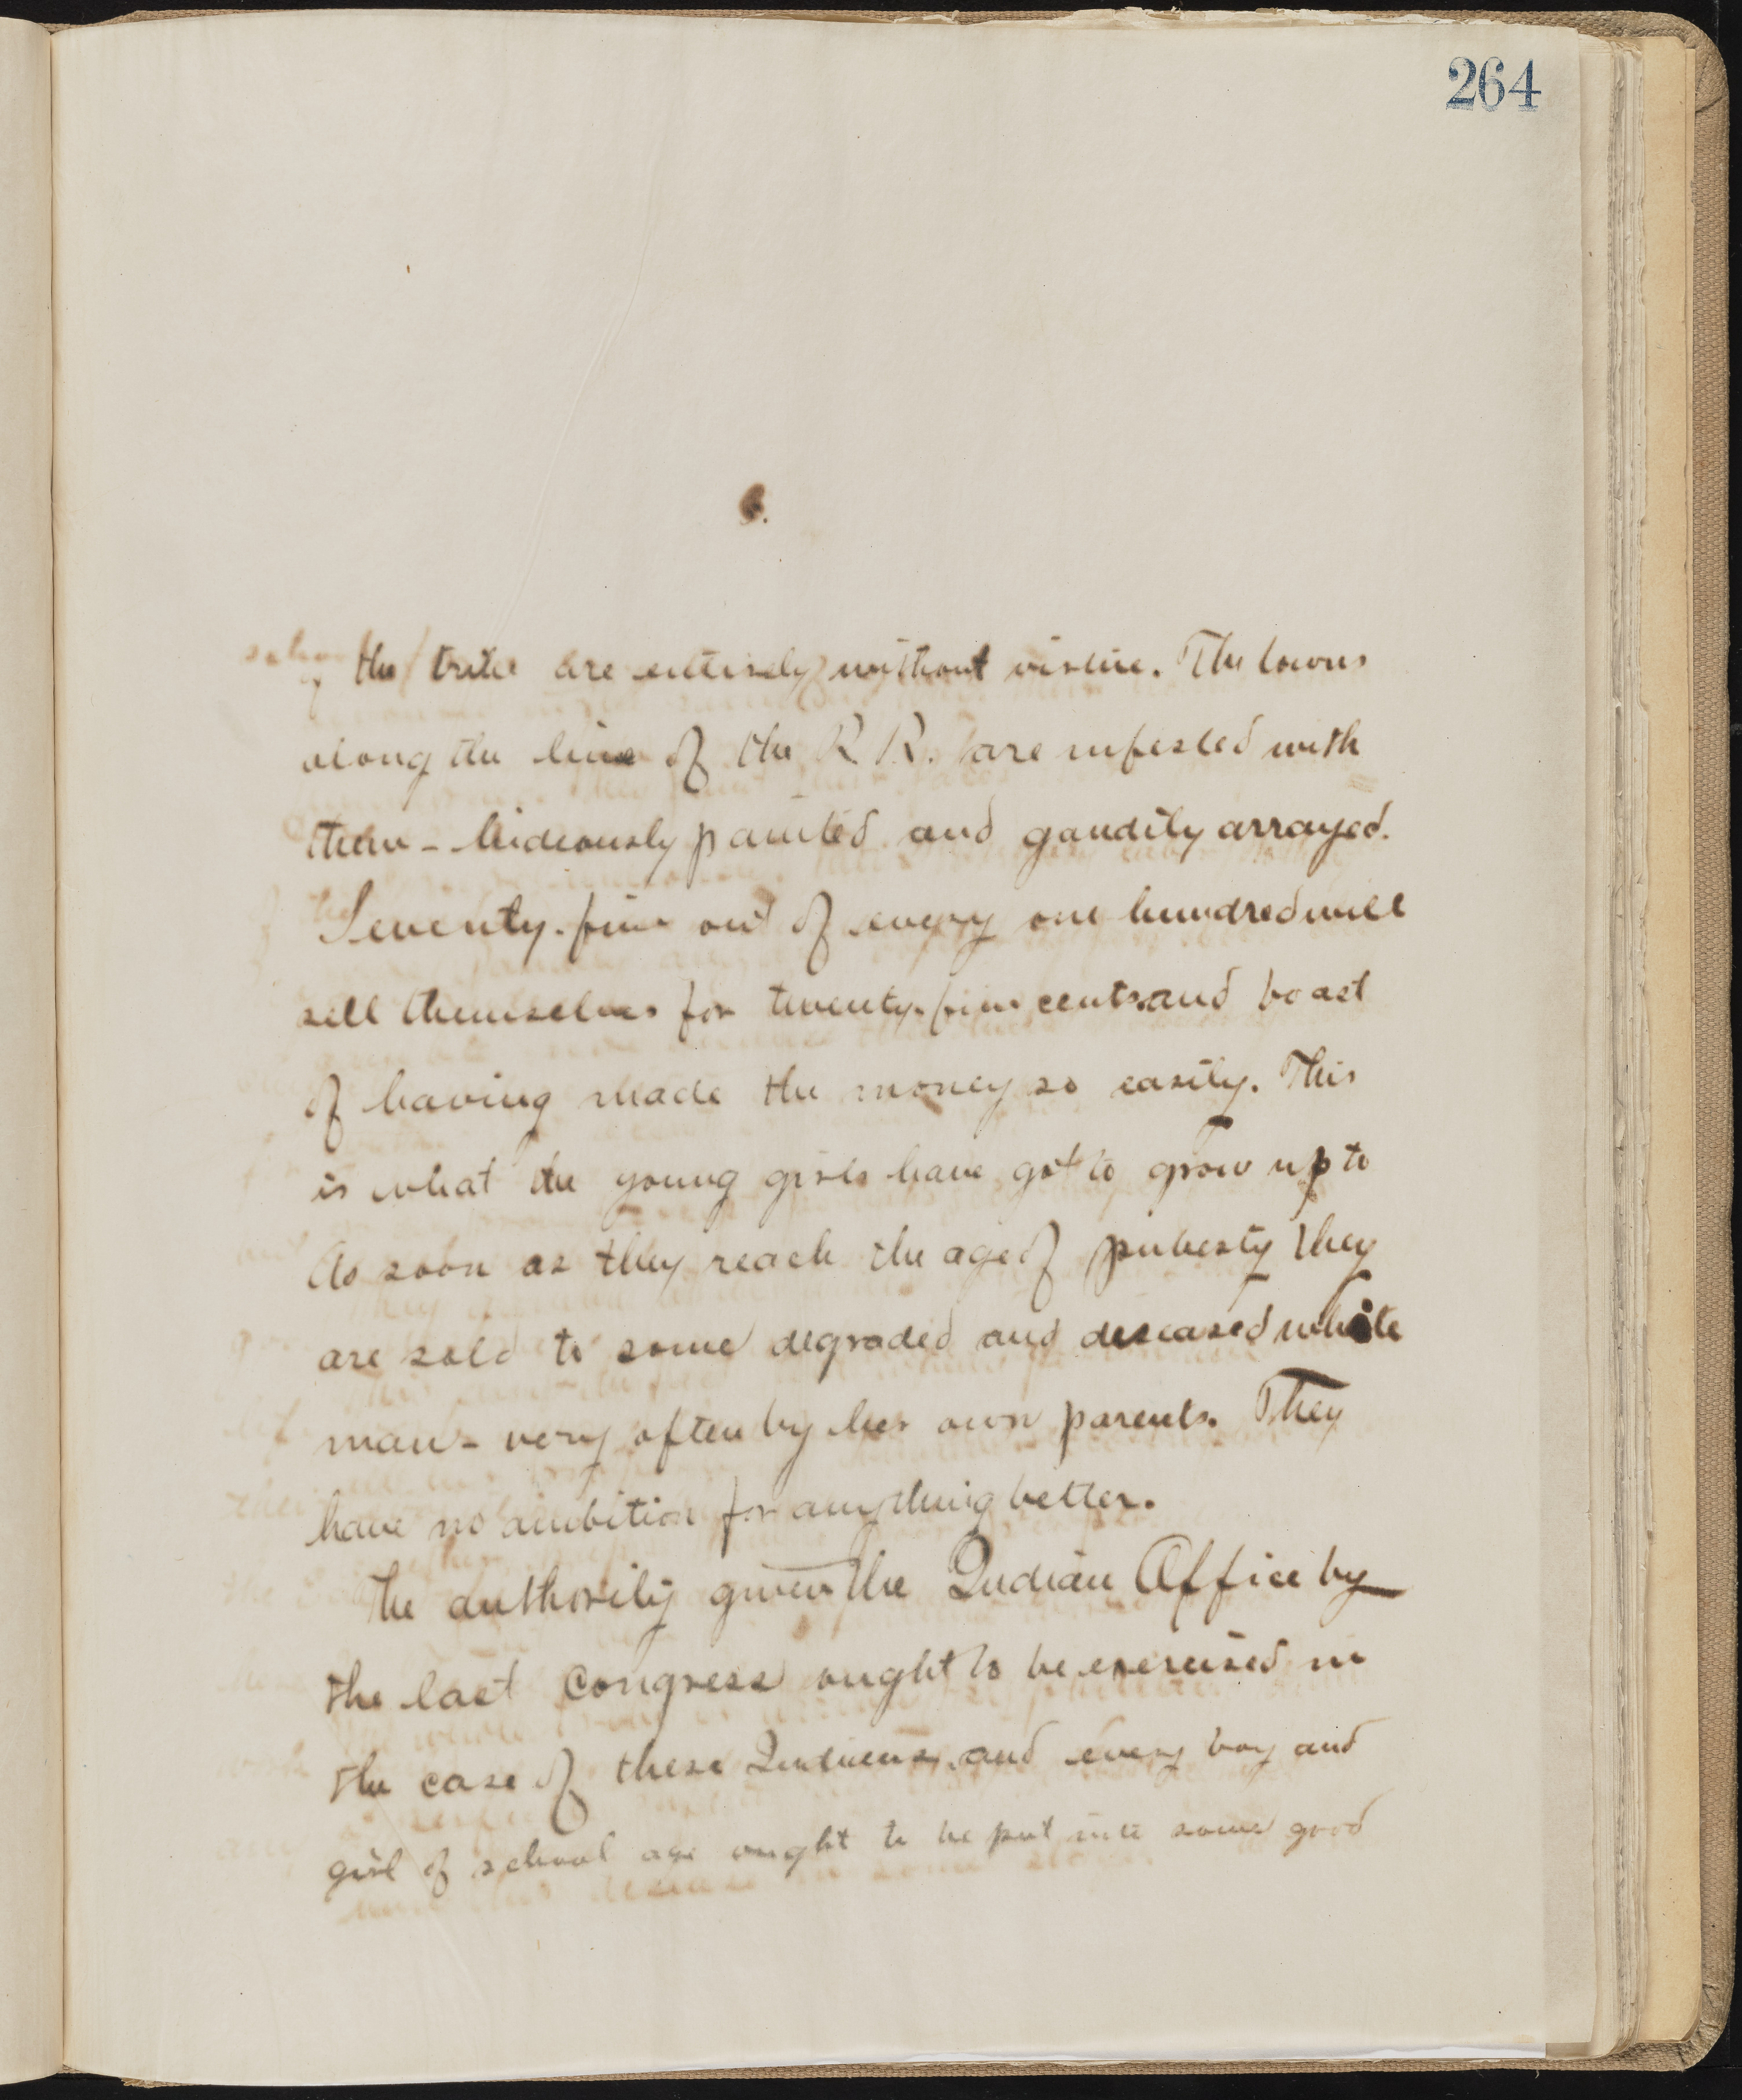 264
6.
of the tribe are entirely without virtue. The towns
along the line of the R R. are infested with
them - hideously painted and gaudily arrayed.
Seventy-five out of every one hundred will
sell themselves for twenty-five cents and boast
of having made the money so easily. This
is what the young girls have got to grow up to
As soon as they reach the age of puberty they
are sold to some degraded and deseased white
man - very often by her own parents. They
have no ambition for anything better.
The authority given the Indian Office by
the last Congress ought to be exercised in
the case of these Indians, and every boy and
girl of school age ought to be put into some good